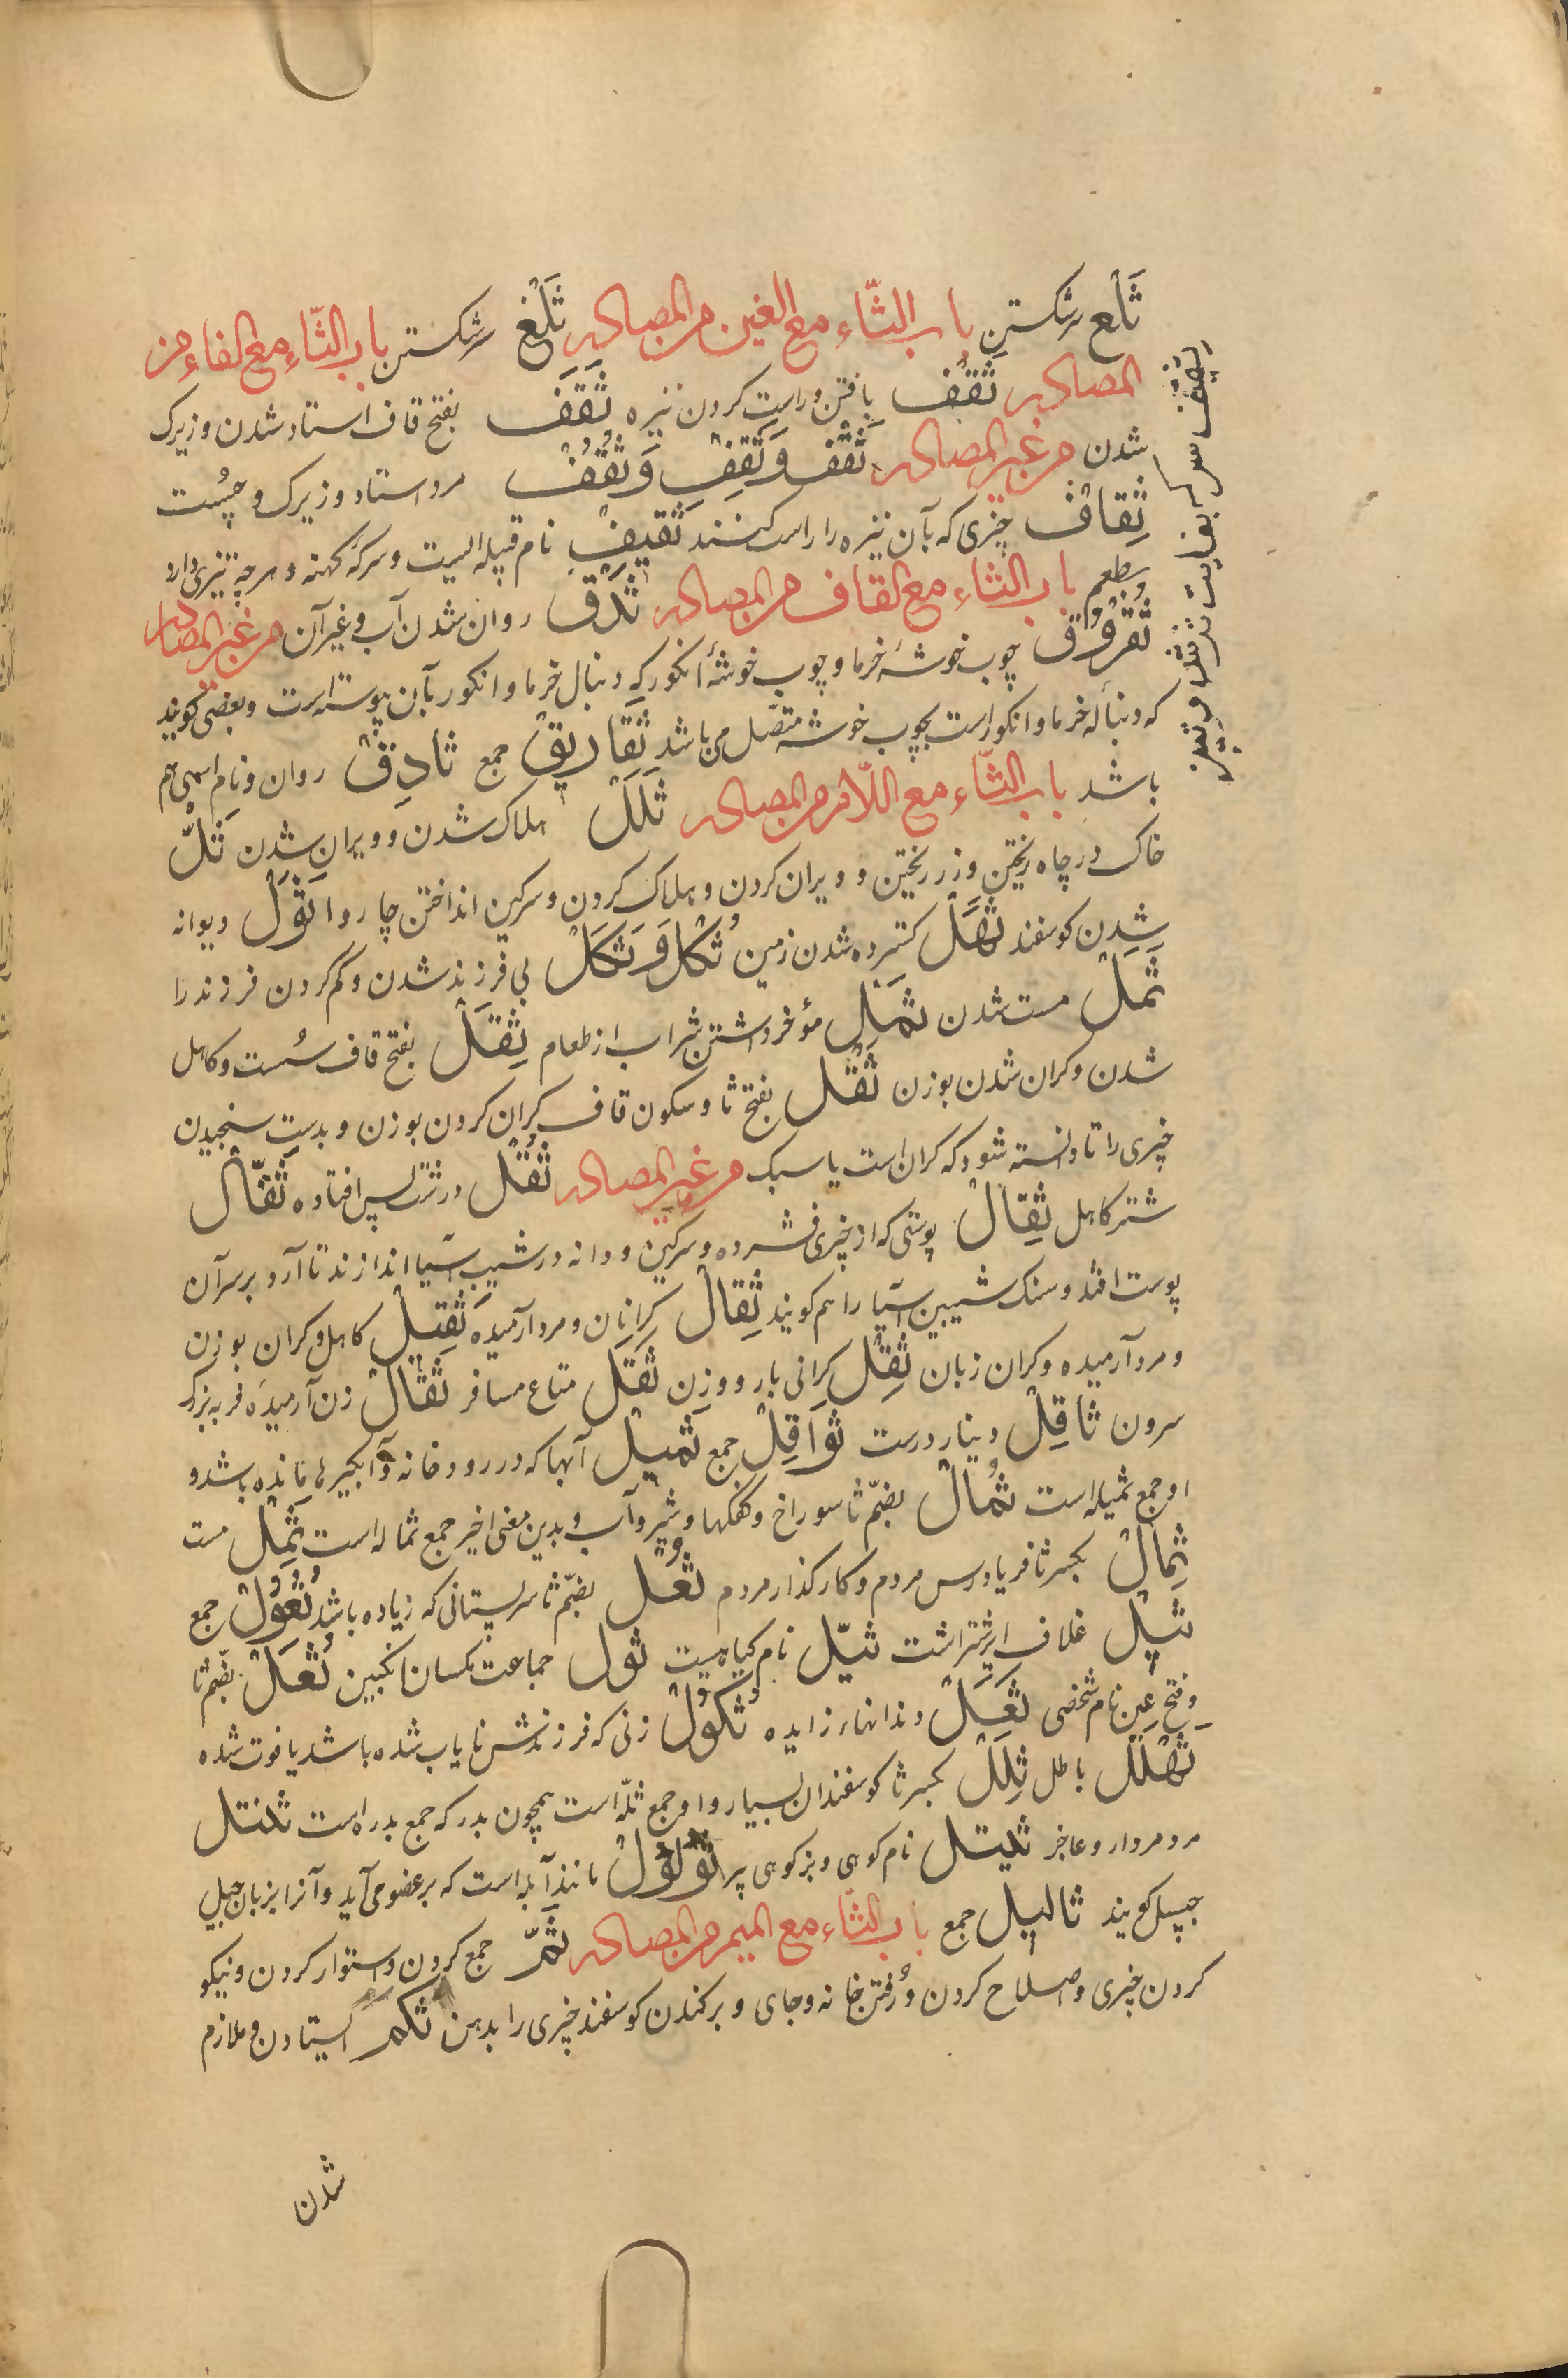 ثَلْع سر شکستن باب الثّاء مع الغین من المصادر ثَلْغ سر شکستن باب الثّاء مع الفاء من
المصادر ثَقْف یافتن و راست کردن نیزه ثَقَف بفتح قاف استاد شدن و زیرک
شدن من غیر المصادر ثَقْف وَ ثَقِف وَ ثَقُف مرد استاد و زیرک و چُست
ثِقاف چیزی که بآن نیزه را راست کنند ثَقیف نام قبیله ایست و سرکهٔ کهنه و هر چه تیزی دارد
بطعم باب الثاء مع القاف من المصادر ثَدَق روان شدن آب و غیر آن من غیر المصادر
ثُفْرُوق چوب خوشهٔ خرما و چوب خوشهٔ انکور که دنبال خرما و انکور بآن پیوسته است و بعضی کویند
که دنبالهٔ خرما و انکور است بچوب خوشه متصّل می باشد ثَفاریق جمع ثادِق روان و نام اسبی هم
باشد باب الثّاء مع اللّام من المصادر ثَلَل هلاک شدن و ویران شدن ثَلّ
خاک در چاه ریختن و زر ریختن و ویران کردن و هلاک کردن و سرکین انداختن چاروا ثَوَل دیوانه
شدن کوسفند ثَهَل کسترده شدن زمین ثُکْل وَ ثَکَل بی فرزند شدن و کم کردن فرزند را
ثَمَل مست شدن ثَمْل مؤخر داشتن شراب از طعام ثِقَل بفتح قاف سُست و کاهل
شدن و کران شدن بوزن ثَقْل بفتح ثا و سکون قاف کران کردن بوزن و بدست سنجیدن
چیزی را تا دانسته شود که کران است یا سبک من غیر المصادر ثُفْل درشت پس افتاده ثَفّال
شتر کاهل ثِفال پوستی که از چیزی فشرده و سرکین و دانه در شیب آسیا اندازند تا آرد بر سر آن
پوست افتد و سنک شیبین آسیا را هم کویند ثِقال کرانان و مرد آرمیده ثَقیل کاهل و کران بوزن
و مرد آرمیده و کران زبان ثِقْل کرانی بار و وزن ثَقَل متاع مسافر ثَقال زن آرمیده فربه بزرک
سرون ثاقِل دینار درست ثَواقِل جمع ثَمیل آبها که در رودخانه و آبکیرها مانده باشد و
او جمع ثمیله است ثُمال بضمّ ثا سوراخ و کفکها و شیر و آب و بدین معنی اخیر جمع ثماله است ثَمِل مست
ثِمال بکسر ثا فریادرس مردم و کار کذار مردم ثُعْل بضمّ ثا سر پستانی که زیاده باشد ثُعُول جمع
ثِیل غلاف ایر شتر است ثیّل نام کیاهیست ثول جماعت مکسان انکبین ثُعَل بضّم ثا
و فتح عین نام شخصی ثَعَل دندانهاء زایده ثُکول زنی که فرزندش نایاب شده باشد یا فوت شده
ثَهْلَل باطل ثِلَل بکسر ثا کوسفندان بسیار و او جمع ثلّه است همچون بدر که جمع بدره است ثنتل
مرد مردار و عاجز ثیتل نام کوهی و بز کوهی پر ثُؤلول مانند آبله است که بر عضو می آید و آنرا بزبان جیل
جیسل کویند ثالیل جمع باب الثّاء مع المیم من المصادر ثَمّ جمع کردن و استوار کردن و نیکو
کردن چیزی و اصلاح کردن و رُفتن خانه و جای و برکندن کوسفند چیزی را بدهن ثکم ایستادن و ملازم
شدن
ثقیف سرکه بغایت ترش و تیز